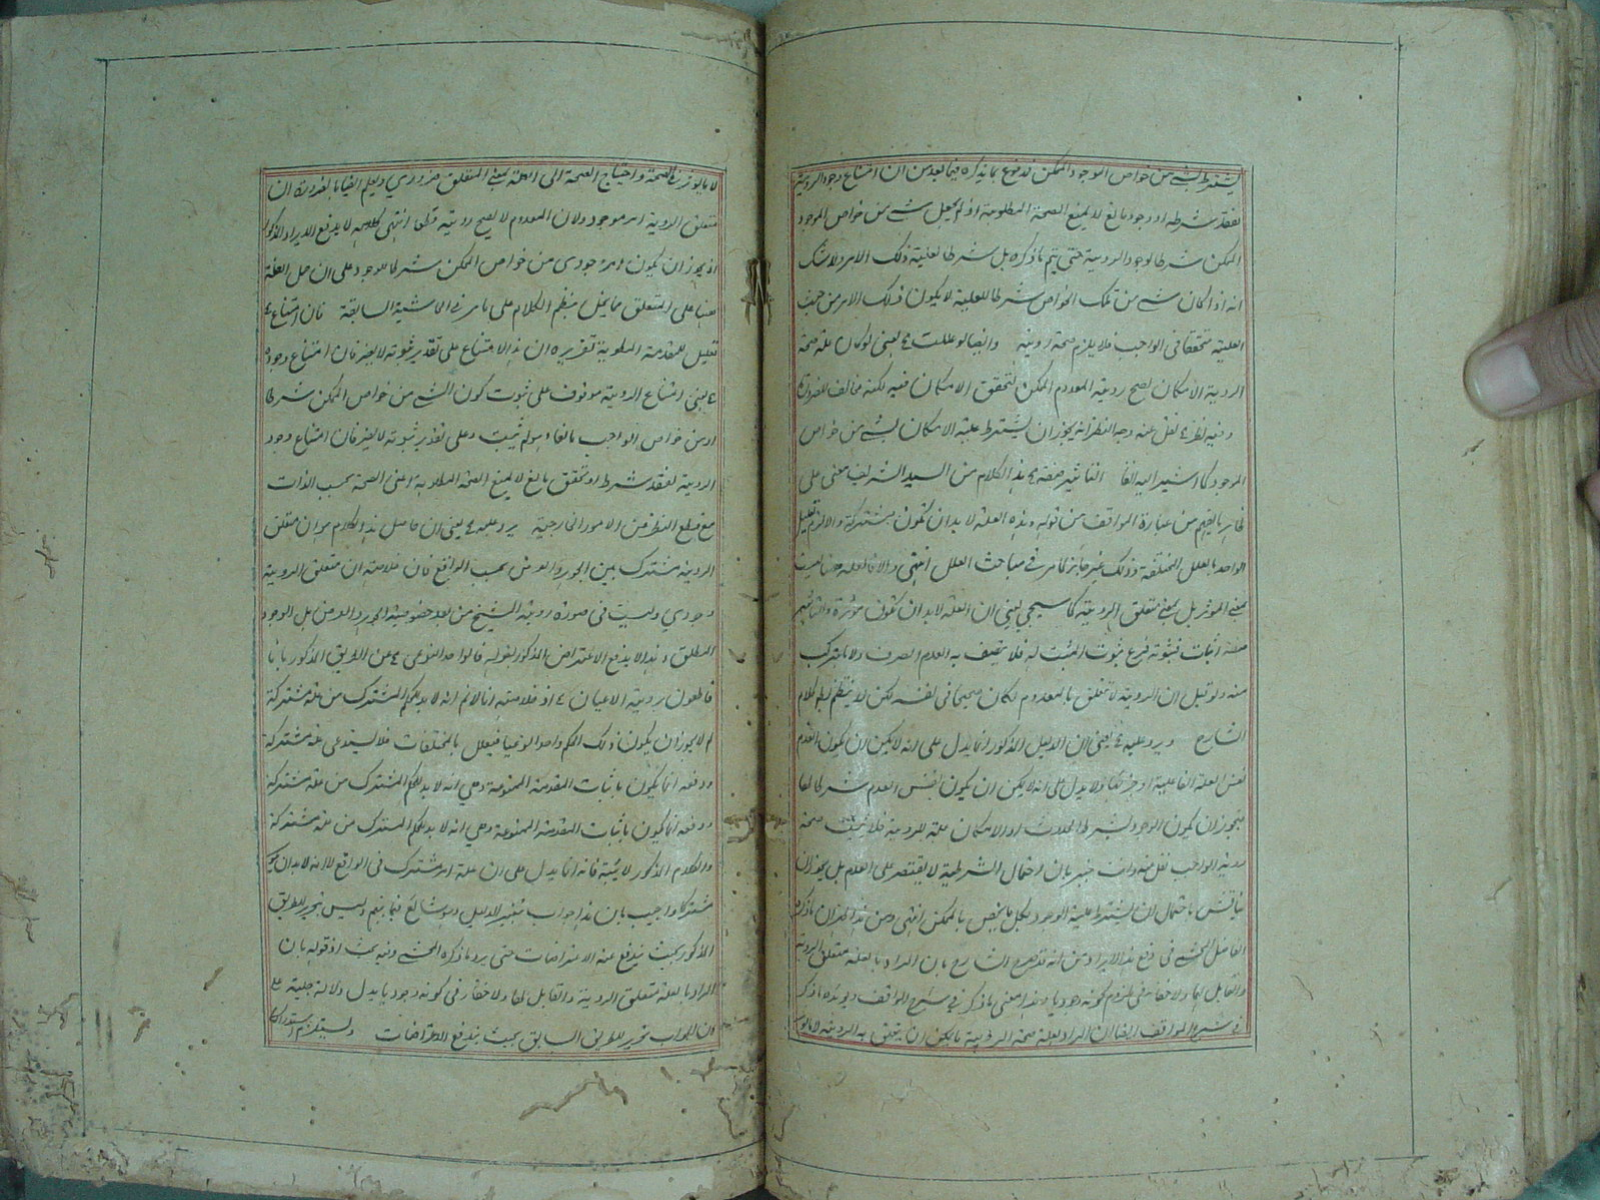 يشترط بشيء من خواص الوجود الممكن فمدفوع بما يذكره فيما بعد من ان امتناع وجود الروية
لفقد شرطه او وجود مانع لا يمنع الصحة المطلوبة اذ لم يجعل شيء من خواص الموجود
الممكن شرطا لوجود الروية حتى يتم ما ذكره بل شرطا لعلية ذلك الامر ولا شك
انه اذا كان شيء من تلك الخواص شرطا للعلية لا يكون ذلك الامر من حيث
العلية متحققا في الواجب فلا يلزم صحة روية وايضا لو عللت يعني لو كان علة صحة
الروية الامكان لصح روية المعدوم الممكن لتحقق الامكان فيه لكنه مخالف للضرورة
وفيه نظر نقل عنه وجه النظر انه يجوز ان يشترط علية الامكان بشيء من خواص
الموجود كما اشير اليه آنفا التاثير صفة هذا الكلام من السيد الشريف مبني على
ظاهر ما يفهم من عبارة المواقف من قوله وهذه العلة لا بد ان تكون مشتركة والا لزم تعليل
الواحد بالعلل المختلفة وذلك غير جائز كما مر في مباحث العلل انتهى والا فالعلة ههنا ليست
بمعنى الموثر بل بمعنى متعلق الروية كما سيجي يعني ان العلة لا بد ان تكون موثرة والتاثير
صفة اثبات فثبوته فرع ثبوت المثبت له فلا يتصف به العدم الصرف ولا ما تركب
منه ولو قيل ان الروية لا تتعلق بالمعدوم لكان صحيحا في نفسه لكن لا ينتظم له كلام
الشارح ويرد عليه يعني ان الدليل المذكور انما يدل على انه لا يمكن ان يكون العدم
نفس العلة الفاعلية او جزئها ولا يدل على انه لا يمكن ان يكون نفس العدم شرطا لها
فيجوز ان يكون الوجود بشرط الحدوث او الامكان علة للروية فلا يثبت صحة
روية الواجب نقل عنه وانت خبير بان احتمال الشرطية لا يقتصر على العدم بل يجوز ان
يناقش باحتمال ان يشترط علية الوجود بكل ما يختص بالممكن انتهى ومن هذا يظهر ان ما ذكره
الفاضل المحشي في دفع هذا الايراد من انه قد صرح الشارح بان المراد بالعلة متعلق الروية
والقابل لها ولا خفاء في لزوم كونه وجوديا وهذا معنى ما ذكر في شرح المواقف ويؤيده ما ذكر
في شرح المواقف ايضا ان المراد بعلة صحة الروية ما يمكن ان يتعلق به الروية لا ما يوثر
لا ما يوثر في الصحة واحتياج الصحة الى العلة بمعنى المتعلق ضروري ويعلم ايضا بالضرورة ان
متعلق الروية امر موجود ولان المعدوم لا يصح رويته قطعا انتهى كلامه لا يدفع الايراد المذكور
اذ يجوز ان يكون امر وجودي من خواص الممكن شرطا للوجود على ان حمل العلة
ههنا على المتعلق مما يخل بنظم الكلام على ما مر في الحاشية السابقة فان امتناع
تعليل للمقدمة المطوية تقريره ان هذا الامتناع على تقدير ثبوته لا يضر فان امتناع وجود
يعني امتناع الروية موقوف على ثبوت كون الشيء من خواص الممكن شرطا
او من خواص الواجب مانعا ولم يثبت وعلى تقدير ثبوته لا يضر فان امتناع وجود
الروية لفقد شرط او تحقق مانع لا يمنع الصحة المطلوبة اعني الصحة بحسب الذات
مع قطع النظر عن الامور الخارجية يرد عليه يعني ان حاصل هذا الكلام هو ان متعلق
الروية مشترك بين الجوهر والعرض بحسب الواقع فان خلاصته ان متعلق الروية
وجودي وليست في صورة روية الشبح من بعد خصوصية الجوهر والعرض بل الوجود
المطلق وهذا لا يدفع الاعتراض المذكور بقوله فالواحد النوعي عن الطريق المذكور بانا
قاطعون بروية الاعيان اذ خلاصته انا لا نم انه لا بد للحكم المشترك من علة مشتركة
لم لا يجوز ان يكون ذلك الحكم واحدا نوعيا فيعلل بالمختلفات فلا يستدعي علة مشتركة
ودفعه انما يكون باثبات المقدمة الممنوعة وهي انه لا بد للحكم المشترك من علة مشتركة
ودفعه انما يكون باثبات المقدمة الممنوعة وهي انه لا بد للحكم المشترك من علة مشتركة
والكلام المذكور لا يثبته فانه انما يدل على ان علة امر مشترك في الواقع لا انه لا بد ان يكون
مشتركا واجيب بان هذا جواب بتغيير الدليل وهو شائع فيما بينهم وليس تحرير للطريق
المذكور بحيث يندفع عنه الاعتراضات حتى يرد ما ذكره المحشي وفيه بحث اذ قوله بان
المراد بالعلة متعلق الروية والقابل لها ولا خفاء في كونه وجوديا يدل دلالة جلية على
ان الجواب تحرير للطريق السابق بحيث يندفع الاعتراضات ويستلزم استدراك